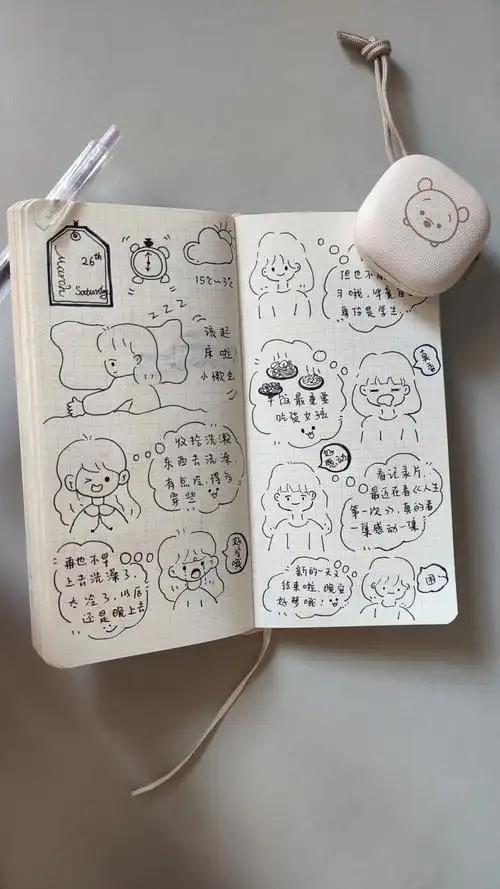 March
26th
Saturday
15℃~3℃
z z z
该起
床啦
小懒虫
收拾洗漱
东西去洗澡
有点冷,得多
穿些
再也不早
上去洗澡了,
太冷了,以后
还是晚上去
好冷哦
但也不
习哦,毕竟
身份是学生
午饭最重要
吃货女孩
真香
好感动
看记录片,
最近在看《人生
第一次》,真的看
一集感动一集
新的一天又
结束啦,晚安
好梦哦!
困~